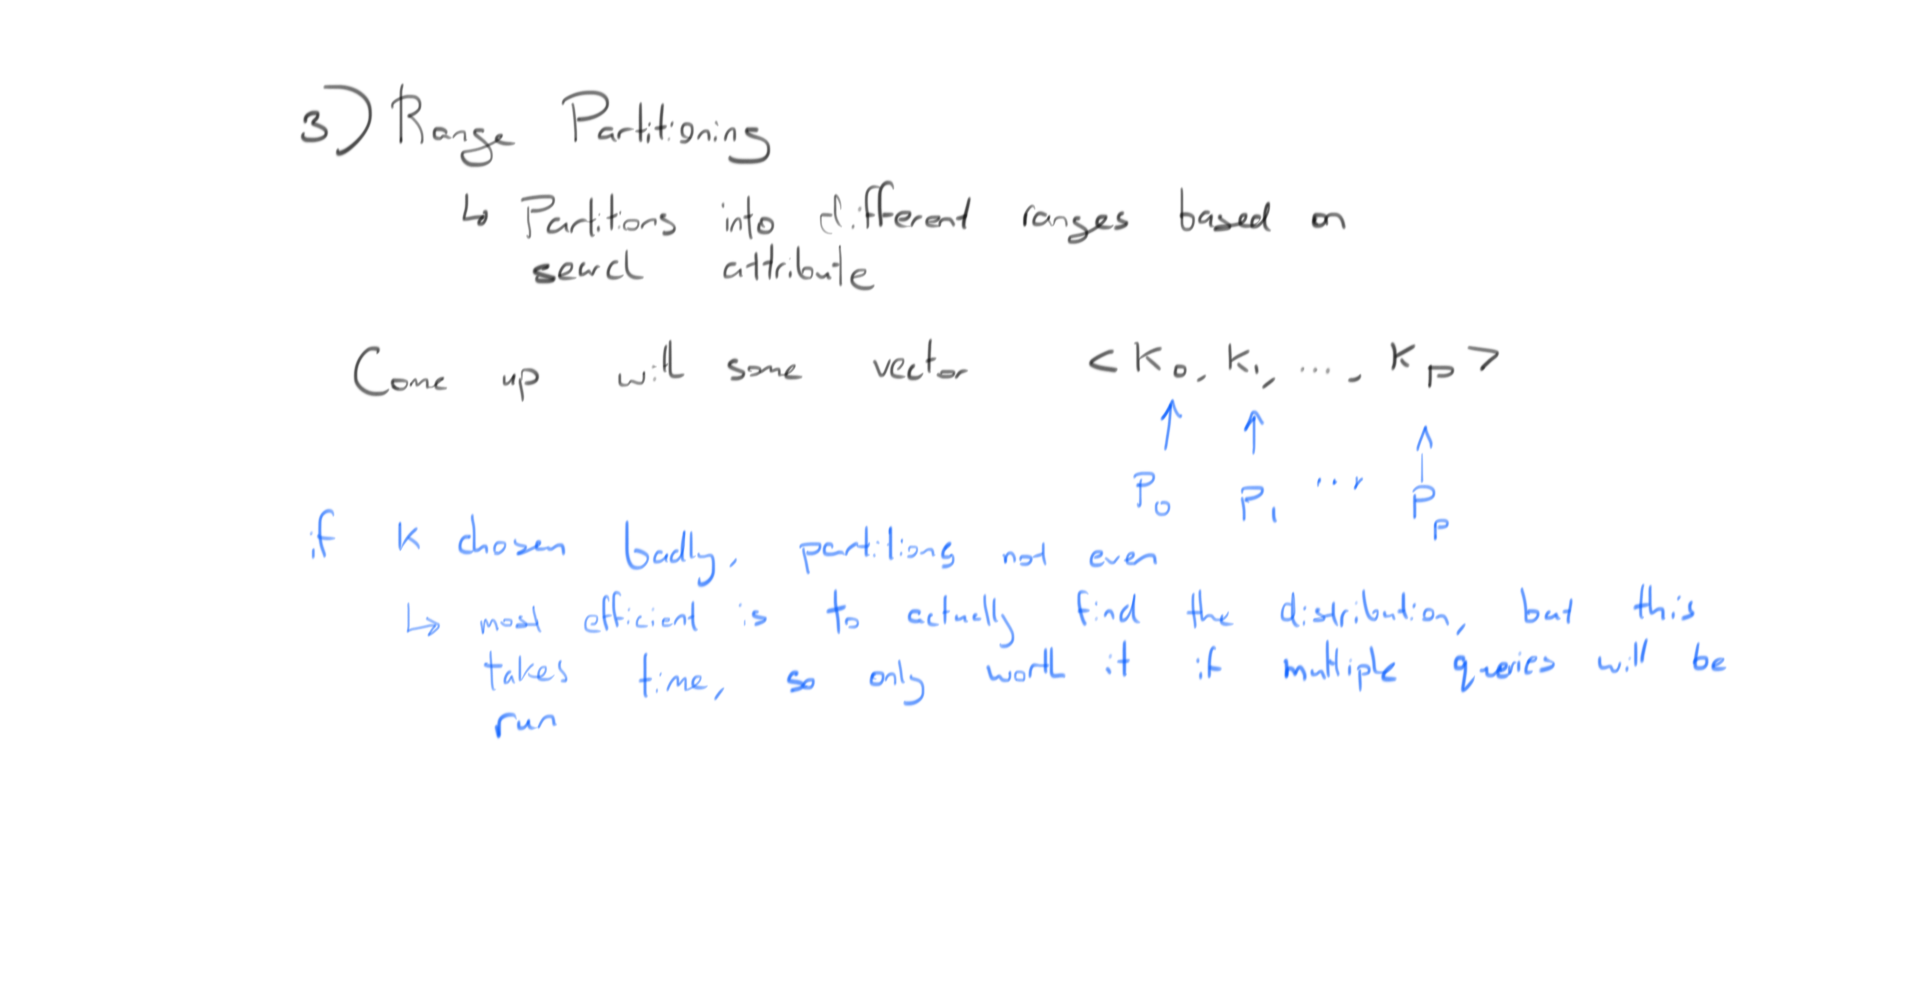 3) Range Partitioning
↳ Partitions into different ranges based on
search attribute
Come up with some vector <K₀, K₁, ..., Kₚ>
↑ ↑ ↑
P₀ P₁ ... Pₚ
if K chosen badly, partitions not even
↳ most efficient is to actually find the distribution, but this
takes time, so only worth it if multiple queries will be
run